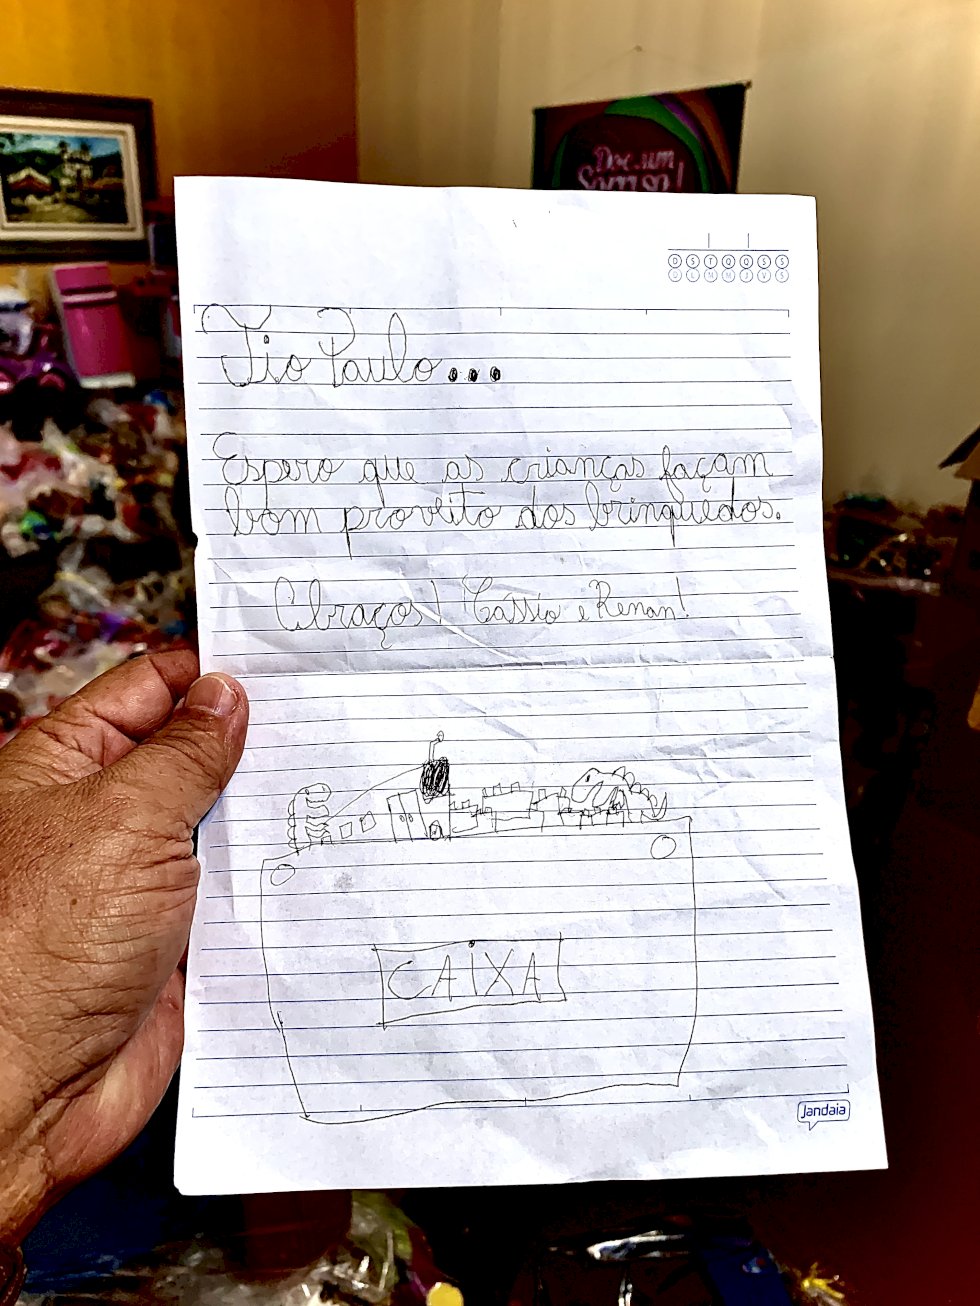 Doe um
Sorriso!
D S T Q Q S S
D L M M J V S
Tio Paulo...
Espero que as crianças façam
bom proveito dos brinquedos.
Abraços! Cássio e Renan!
CAIXA
Jandaia